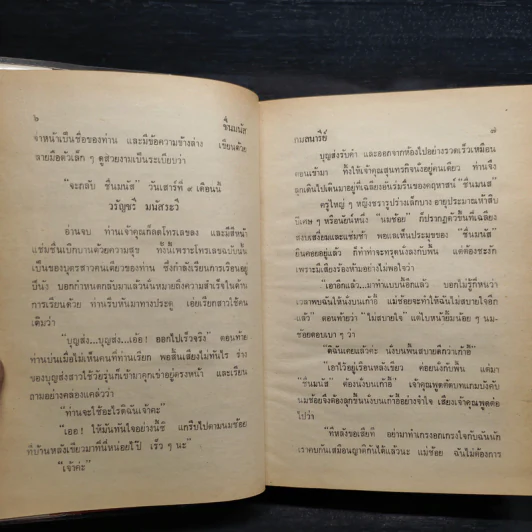 ๖ ชื่นมนัส
จ่าหน้าเป็นชื่อของท่าน และมีข้อความข้างล่าง เขียนด้วย
ลายมือตัวเล็ก ๆ ดูสวยงามเป็นระเบียบว่า
"จะกลับ ชื่นมนัส วันเสาร์ที่ ๙ เดือนนี้
วรัญชรี มนัสระวี
อ่านจบ ท่านเจ้าคุณก็ถือโทรเลขลง และมีสีหน้า
แช่มชื่นเบิกบานด้วยความสุข ทั้งนี้เพราะโทรเลขฉบับนั้น
เป็นของบุตรสาวคนเดียวของท่าน ซึ่งกำลังเรียนการเรือนอยู่
ปีนัง บอกกำหนดกลับมาแล้วนั่นหมายถึงความสำเร็จในด้าน
การเรียนด้วย ท่านรีบหันมาทางประตู เอ่ยเรียกสาวใช้คน
เดิมว่า
"บุญส่ง...บุญส่ง...เออ! ออกไปเร็วจริง" ตอนท้าย
ท่านบ่นเมื่อไม่เห็นคนที่ท่านเรียก พอสิ้นเสียงไม่ทันไร ร่าง
ของบุญส่งสาวใช้วัยรุ่นก็เข้ามาคุกเข่าอยู่ตรงหน้า และเรียน
ถามอย่างคล่องแคล่วว่า
"ท่านจะใช้อะไรดิฉันเจ้าคะ"
"เออ! ให้มันทันใจอย่างนี้ซี แกรีบไปตามนมช้อย
ที่บ้านหลังเขียวมาที่นี่หน่อยไป๊ เร็ว ๆ นะ"
"เจ้าค่ะ"
กมลนารีย์ ๗
บุญส่งรับคำ และออกจากห้องไปอย่างรวดเร็วเหมือน
ตอนเข้ามา ทิ้งให้เจ้าคุณสุนทรกิจนั่งอยู่คนเดียว ท่านจึง
ลุกเดินไปเดินมาอยู่ที่เฉลียงอันร่มรื่นของคฤหาสน์ "ชื่นมนัส"
ครู่ใหญ่ ๆ หญิงชรารูปร่างเล็กบาง อายุประมาณห้าสิบ
พิเศษ ๆ หรือนัยหนึ่ง "นมช้อย" ก็ปรากฏตัวขึ้นที่เฉลียง
สงบเสงี่ยมและแช่มช้า พอแลเห็นประมุขของ "ชื่นมนัส"
ยืนคอยอยู่แล้ว ก็ทำท่าจะทรุดนั่งลงกับพื้น แต่ต้องชะงัก
เพราะมีเสียงร้องห้ามอย่างไม่พอใจว่า
"เอาอีกแล้ว...มาทำแบบนี้อีกแล้ว บอกไม่รู้กี่หนว่า
เวลาพบฉันให้นั่งบนเก้าอี้ แม่ช้อยจะทำให้ฉันไม่สบายใจอีก
แล้ว" ตอนท้ายว่า "ไม่สบายใจ" แต่ใบหน้ายิ้มน้อย ๆ นม-
ช้อยตอบเบา ๆ ว่า
"ดิฉันเคยแล้วค่ะ นั่งบนพื้นสบายดีกว่าเก้าอี้"
"เอาไว้อยู่เรือนหลังเขียว ค่อยนั่งกับพื้น แต่มา
"ชื่นมนัส" ต้องนั่งบนเก้าอี้" เจ้าคุณพูดกึ่งบทแกมบังคับ
นมช้อยจึงต้องลุกขึ้นนั่งบนเก้าอี้อย่างจำใจ เสียงเจ้าคุณพูดต่อ
ไปว่า
"ทีหลังขอเสียที อย่ามาทำเกรงอกเกรงใจกับฉันนัก
เราคบกันเสมือนญาติกันได้แล้วนะ แม่ช้อย ฉันไม่ต้องการ